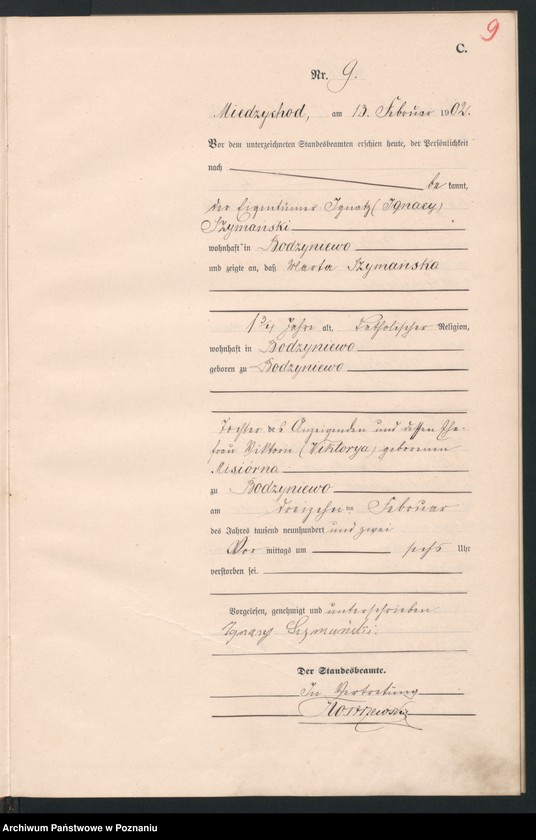 9
C.
Nr. 9.
Miedzychod, am 13. Februar 1902.
Vor dem unterzeichneten Standesbeamten erschien heute, der Persönlichkeit
nach
be kannt,
der Eigentümer Ignatz (Ignacy)
Szymanski
wohnhaft in Bodzyniewo
und zeigte an, daß Marta Szymańska
Jahre alt, katholischer Religion,
wohnhaft in Bodzyniewo
geboren zu Bodzyniewo
Tochter des Anzeigenden und dessen Ehe-
frau Viktoria (Wiktorya) geborenen
Misiorna
zu Bodzyniewo
am dreizehnten Februar
des Jahres tausend neunhundert und zwei
Vor mittags um sechs Uhr
verstorben sei.
Vorgelesen, genehmigt und unterschrieben
Ignacy Szymański.
Der Standesbeamte.
In Vertretung
Archiwum Państwowe w Poznaniu